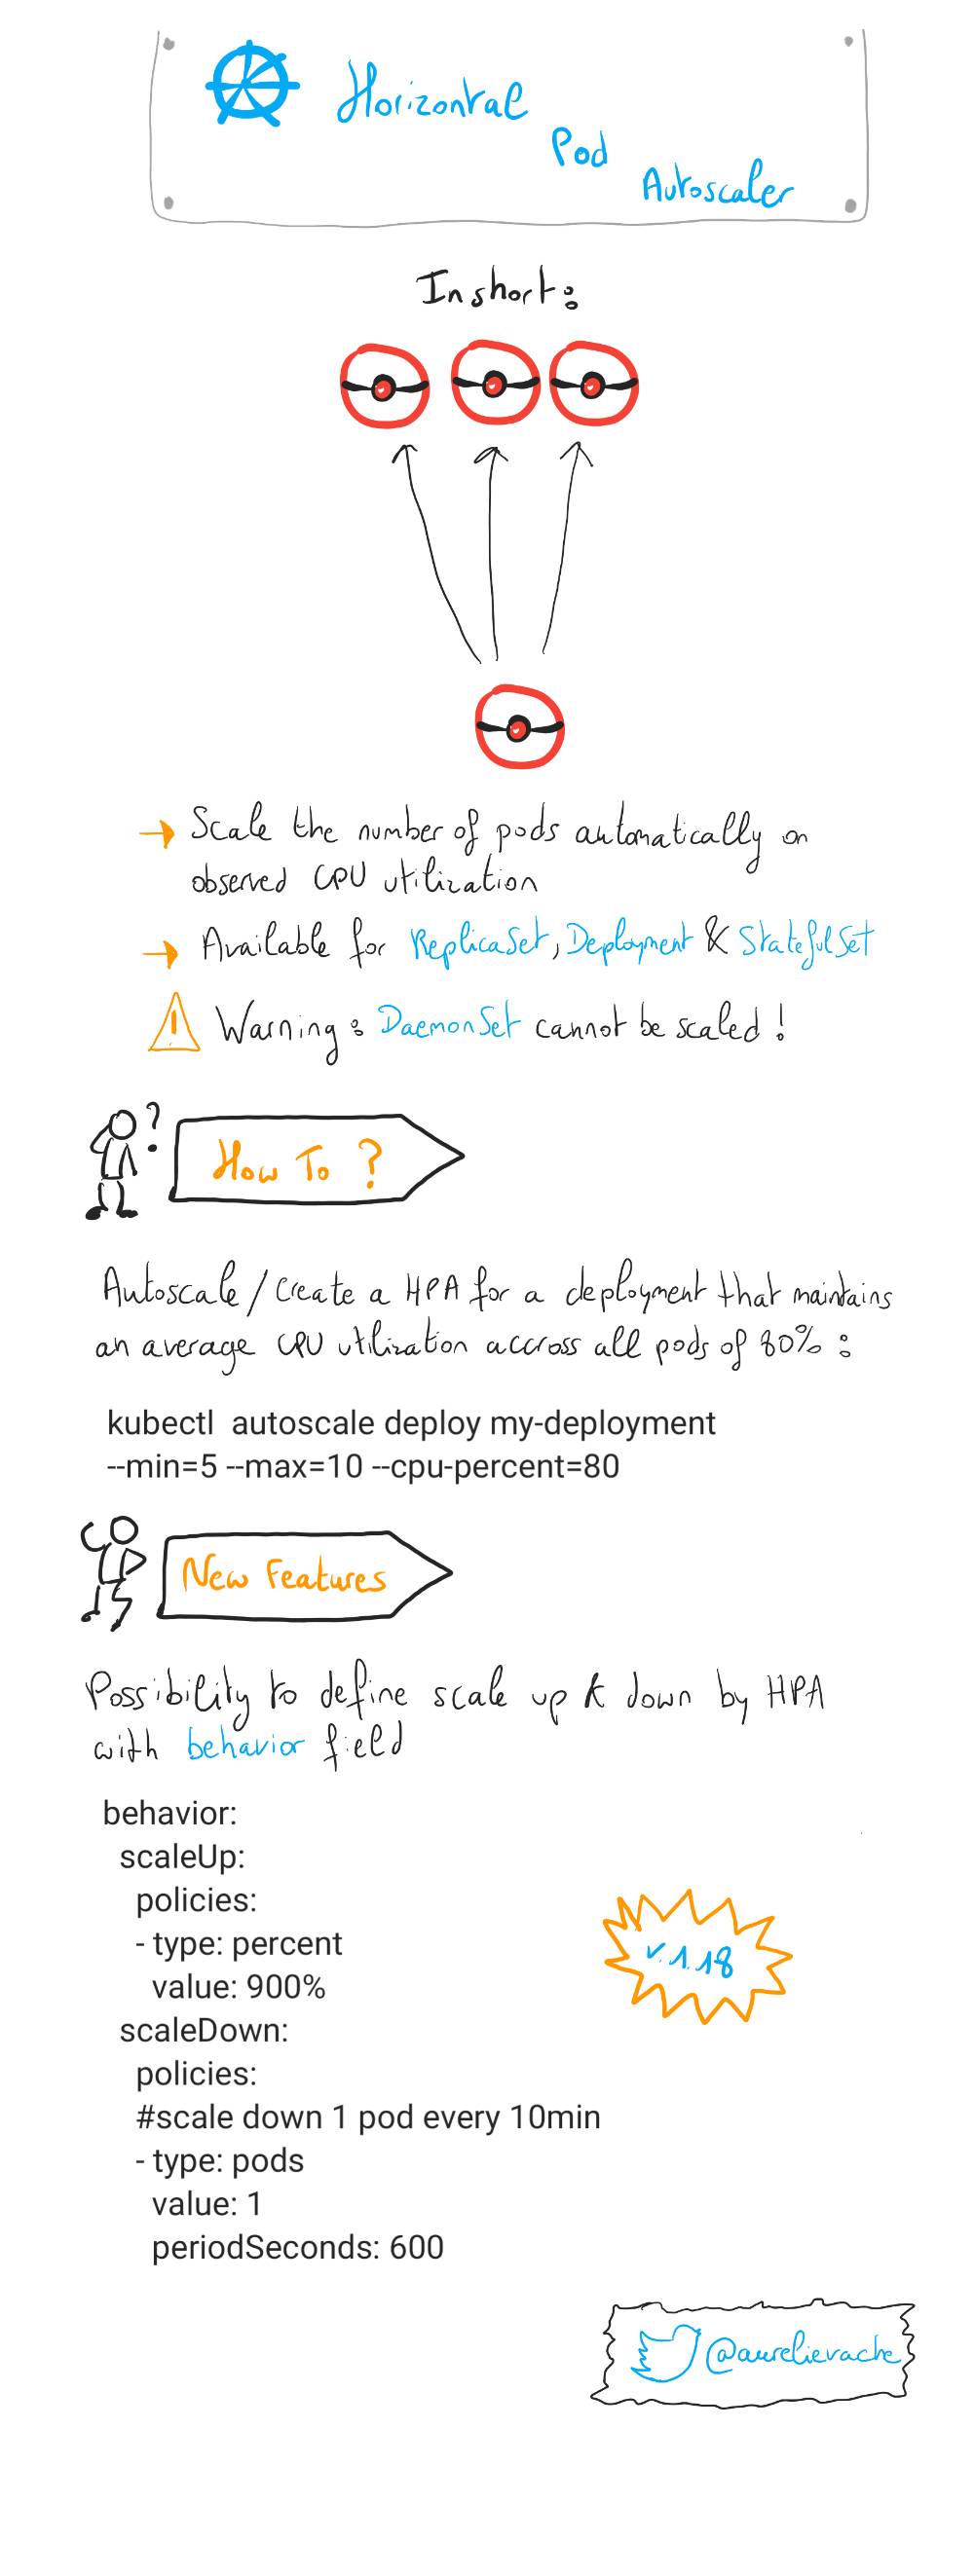 Horizontal
Pod
Autoscaler
In short:
→ Scale the number of pods automatically on
observed CPU utilization
→ Available for ReplicaSet, Deployment & StatefulSet
! Warning: DaemonSet cannot be scaled!
?
How To ?
Autoscale/Create a HPA for a deployment that maintains
an average CPU utilization accross all pods of 80% :
kubectl  autoscale deploy my-deployment
--min=5 --max=10 --cpu-percent=80
New Features
Possibility to define scale up & down by HPA
with behavior field
behavior:
  scaleUp:
    policies:
    - type: percent
      value: 900%
v.1.18
  scaleDown:
    policies:
    #scale down 1 pod every 10min
    - type: pods
      value: 1
      periodSeconds: 600
@aurelievache